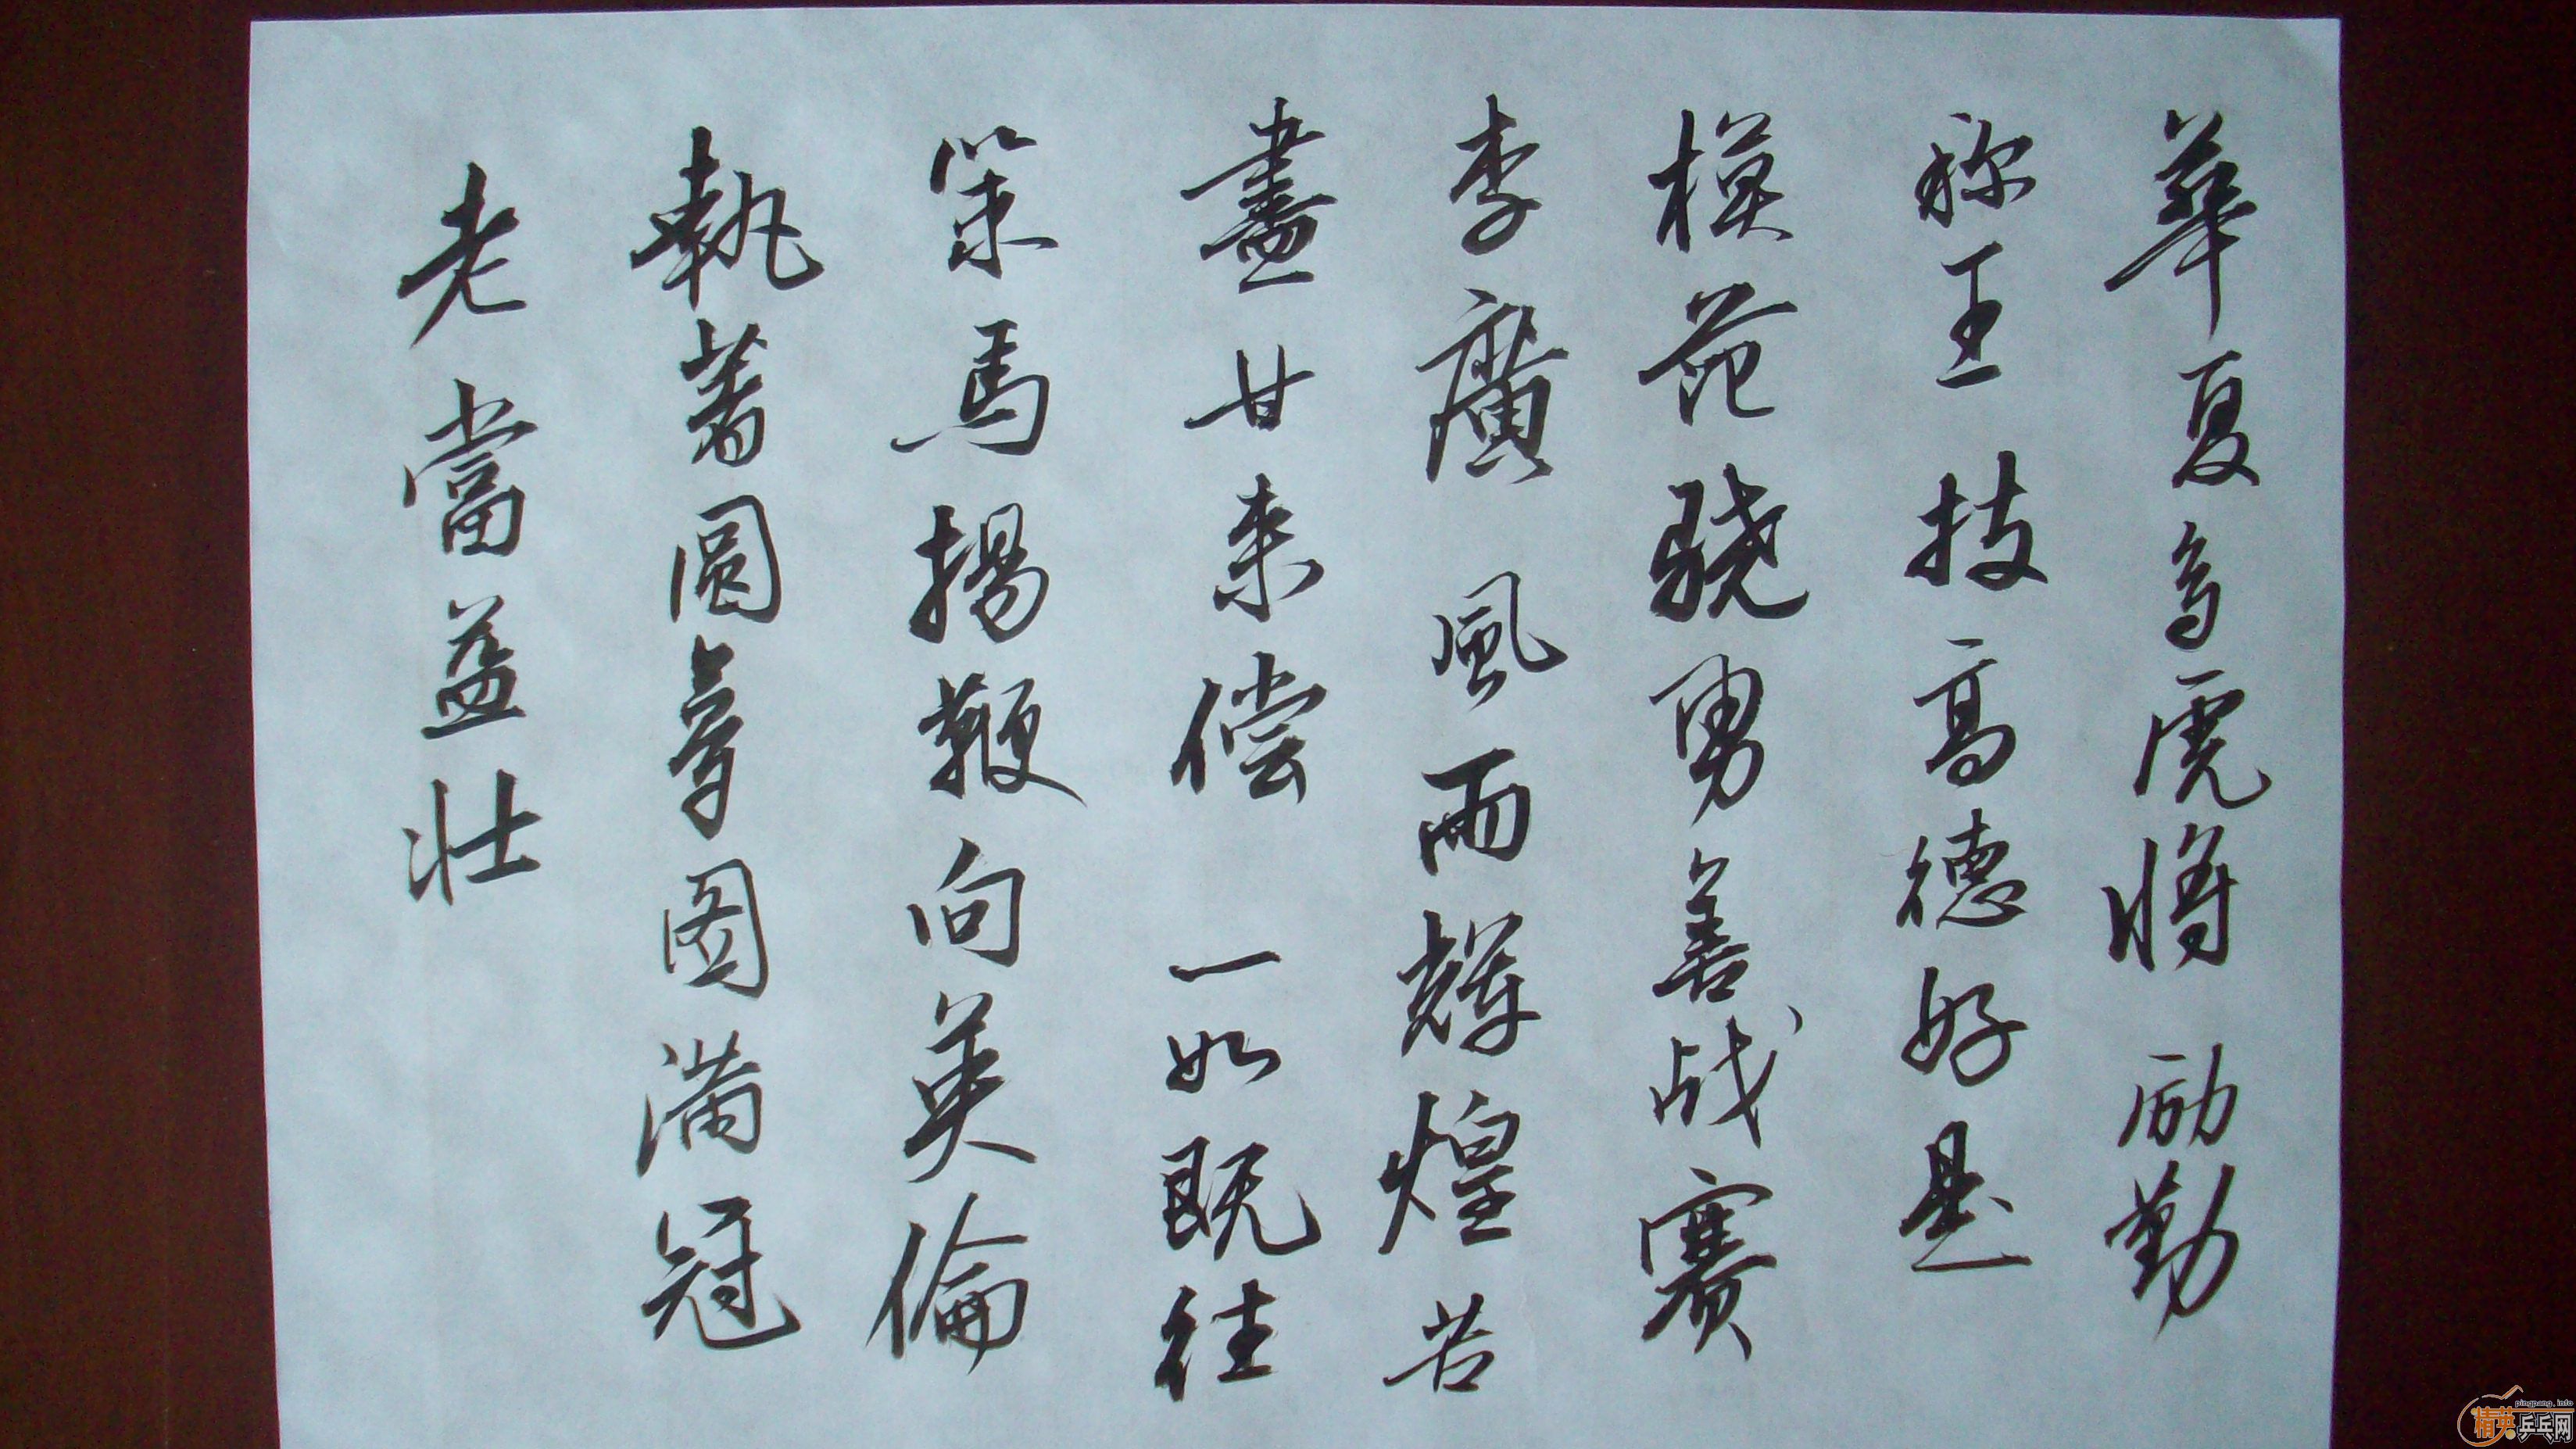 華夏多虎将 励勤
称王 技高德好是
模范 骁勇善战赛
李廣 風雨輝煌苦
盡甘来偿 一如既往
策馬揚鞭向英倫
執著圆夢图满冠
老當益壮
pingpang.info
精英乒乓网